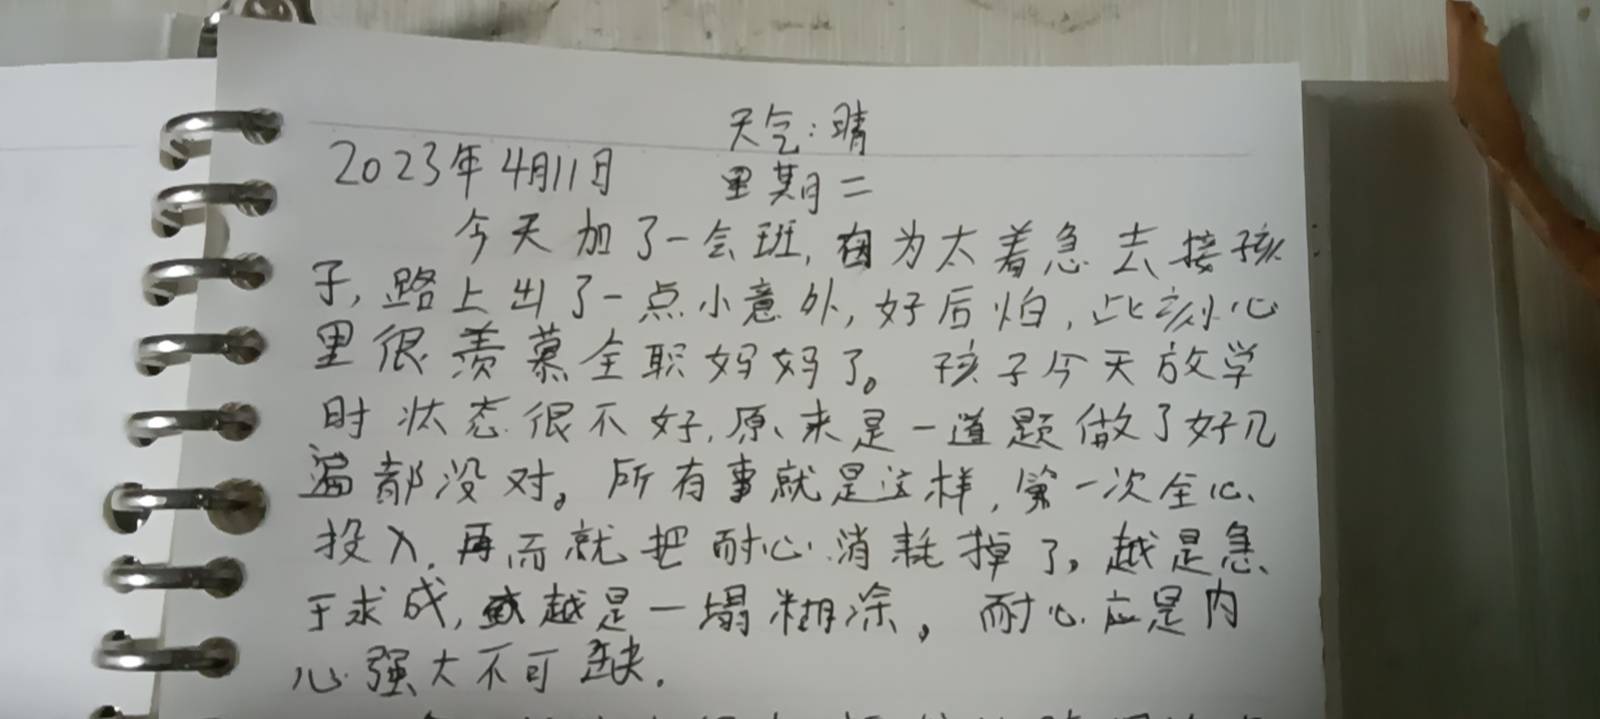 天气:晴
2023年4月11日 星期二
今天加了一会班,因为太着急去接孩
子,路上出了一点小意外,好后怕,此刻心
里很羡慕全职妈妈了。孩子今天放学
时状态很不好,原来是一道题做了好几
遍都没对。所有事就是这样,第一次全心
投入,再而就把耐心消耗掉了。越是急
于求成,越是一塌糊涂。耐心应是内
心强大不可缺.